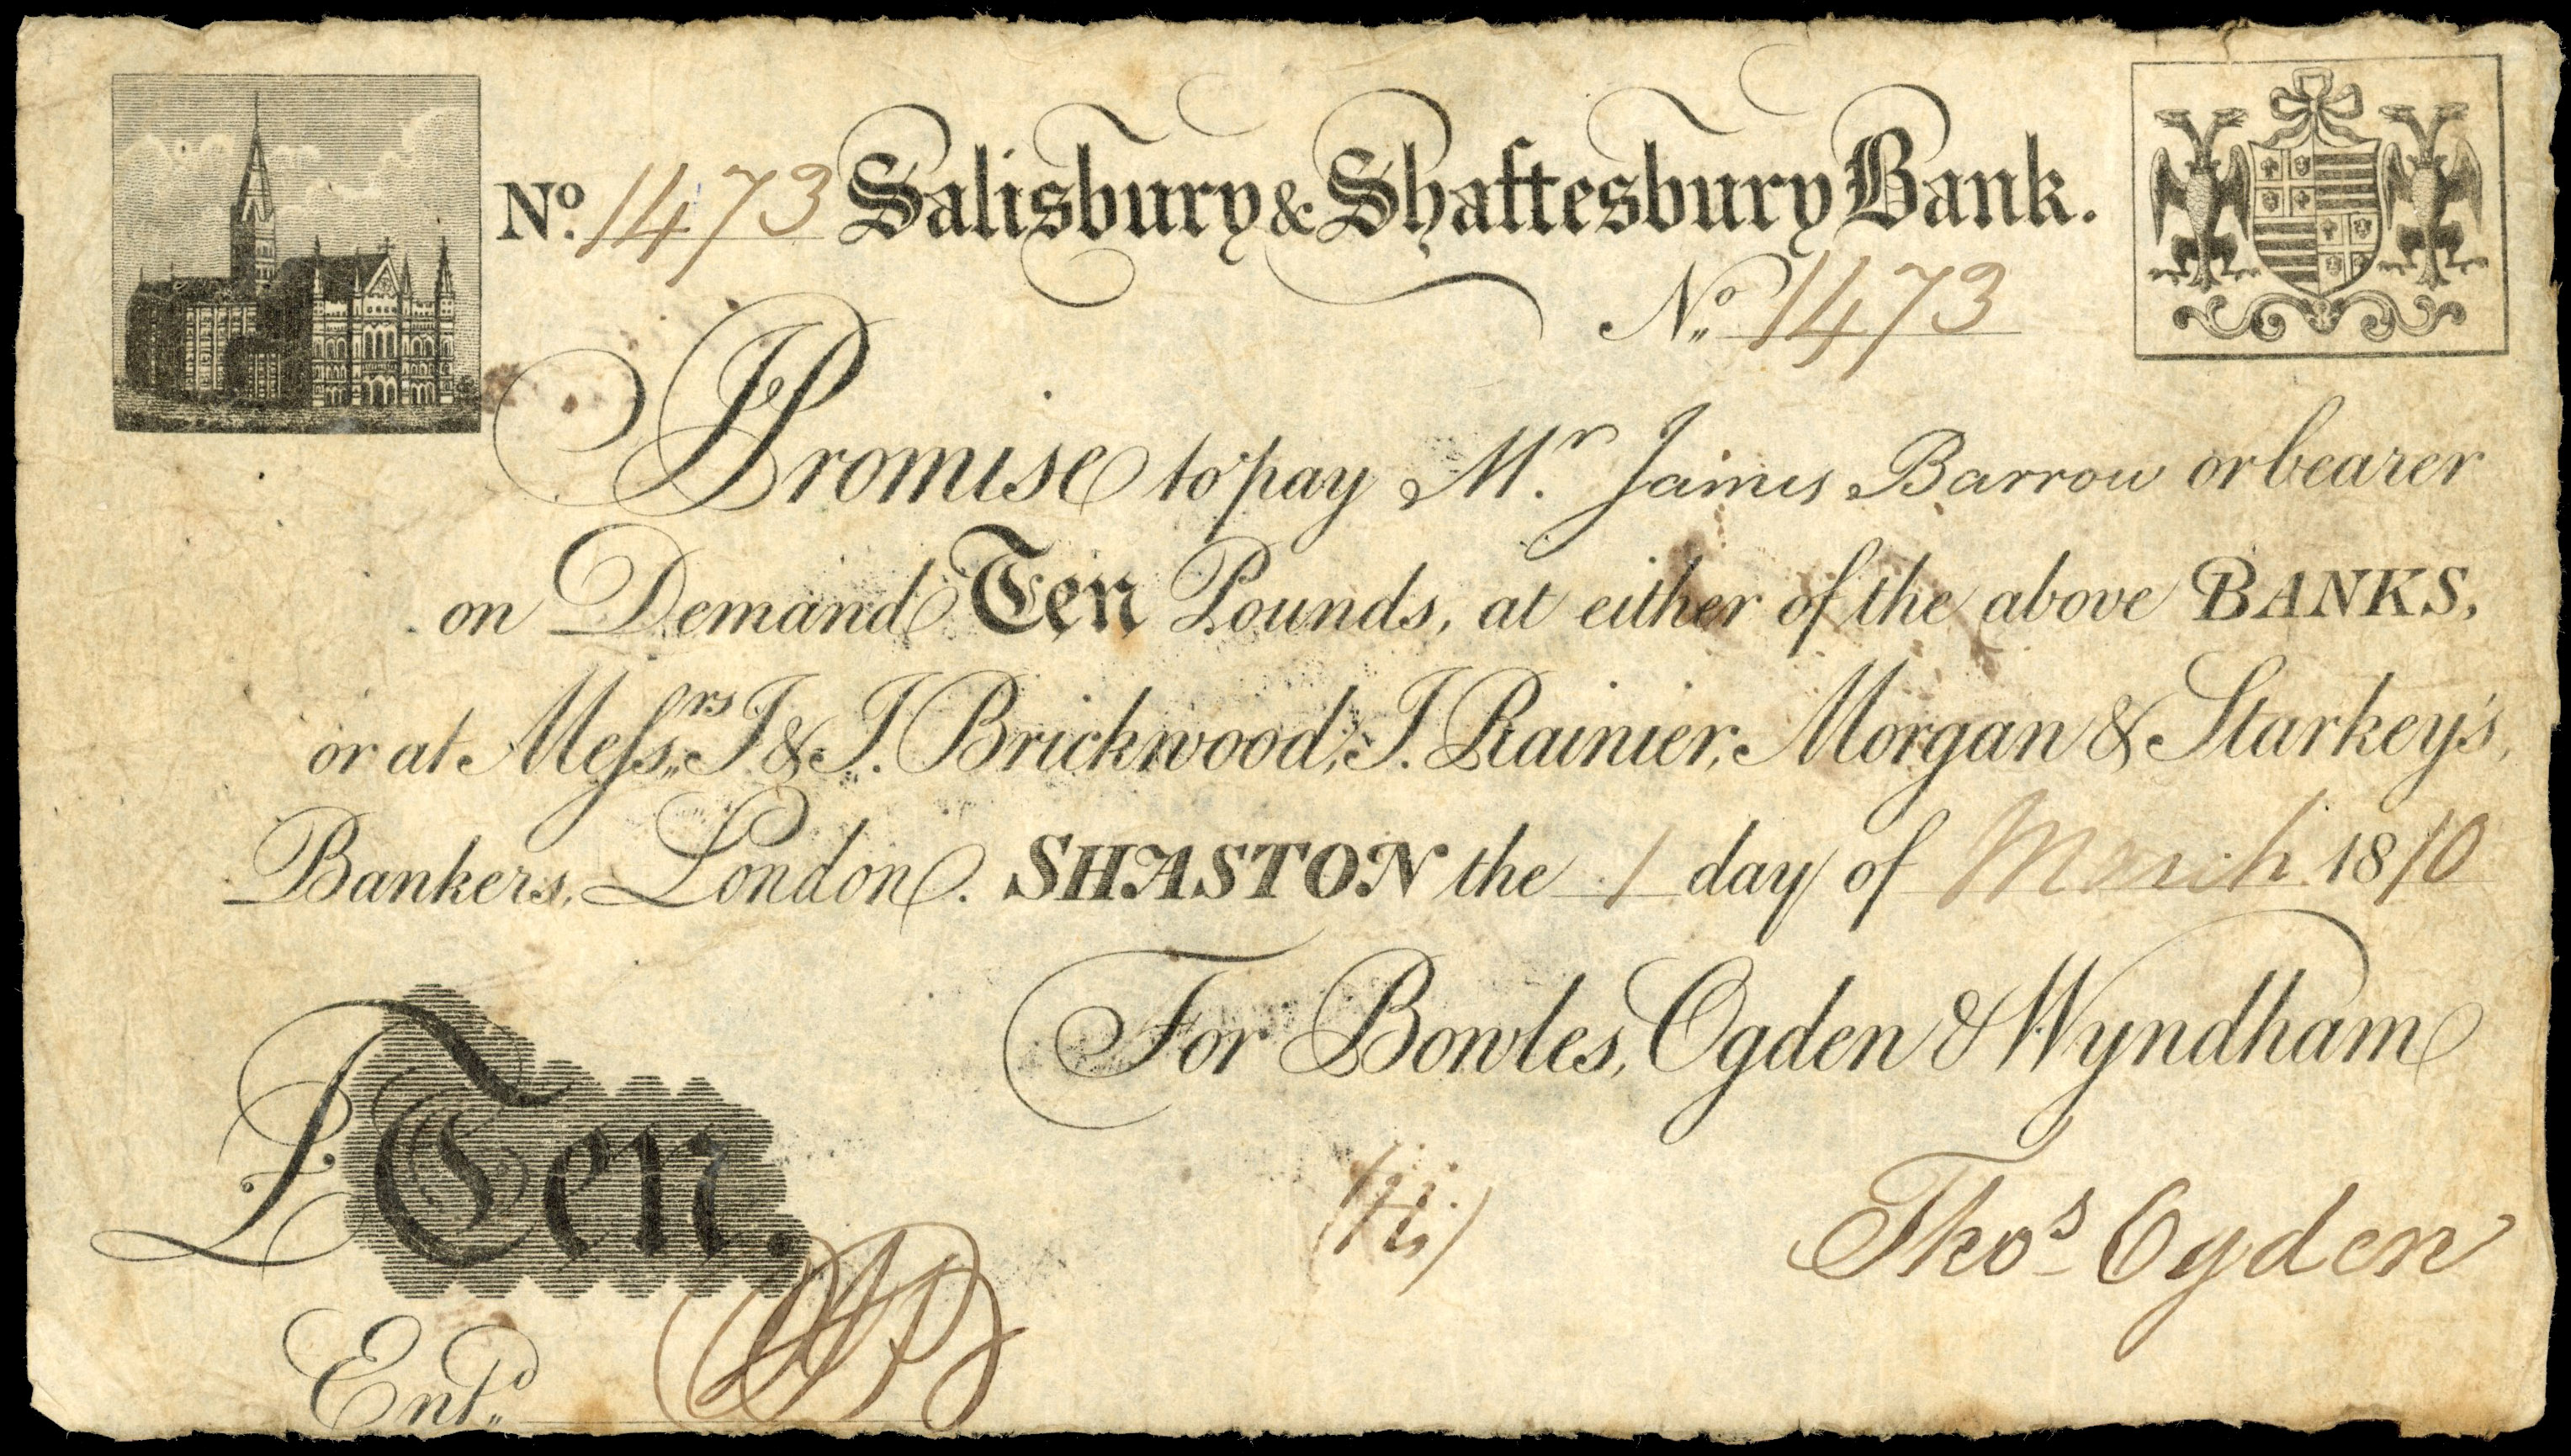 No. 1473 Salisbury & Shaftesbury Bank.
No. 1473
I Promise to pay Mr. James Barrow or bearer
on Demand Ten Pounds, at either of the above BANKS,
or at Messrs. J & J. Brickwood, J. Rainier, Morgan & Starkey's,
Bankers, London. SHASTON the 1 day of March 1810
For Bowles, Ogden & Wyndham
£Ten.
Thos Ogden
Entd.